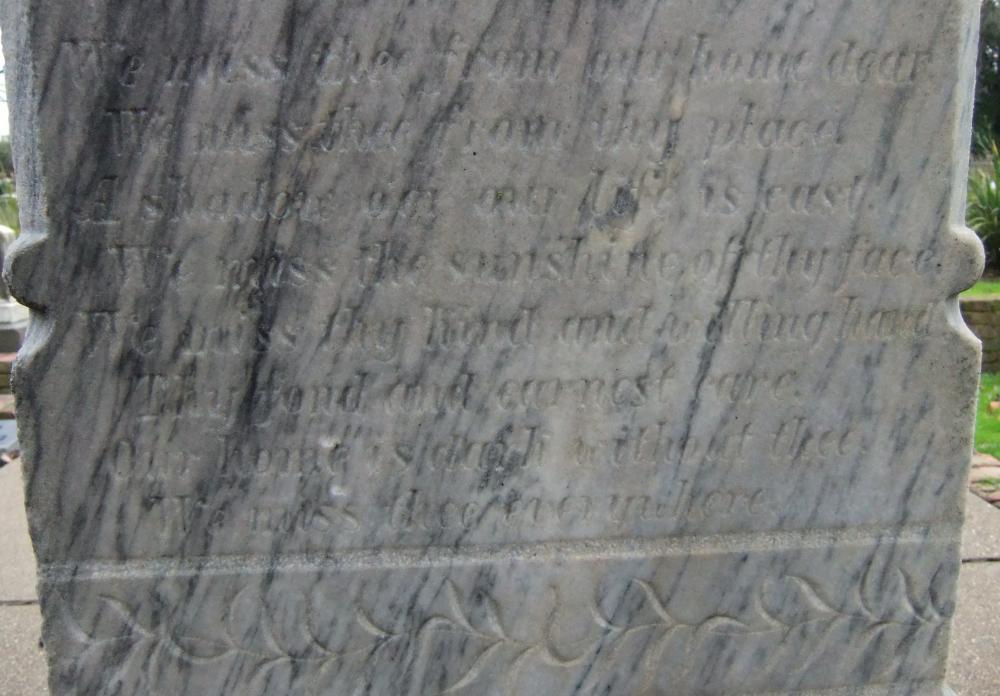 We miss thee from our home dear
We miss thee from thy place.
A shadow o'er our life is cast.
We miss the sunshine of thy face.
We miss thy kind and willing hand
Thy fond and earnest care.
Our home is dark without thee.
We miss thee everywhere.